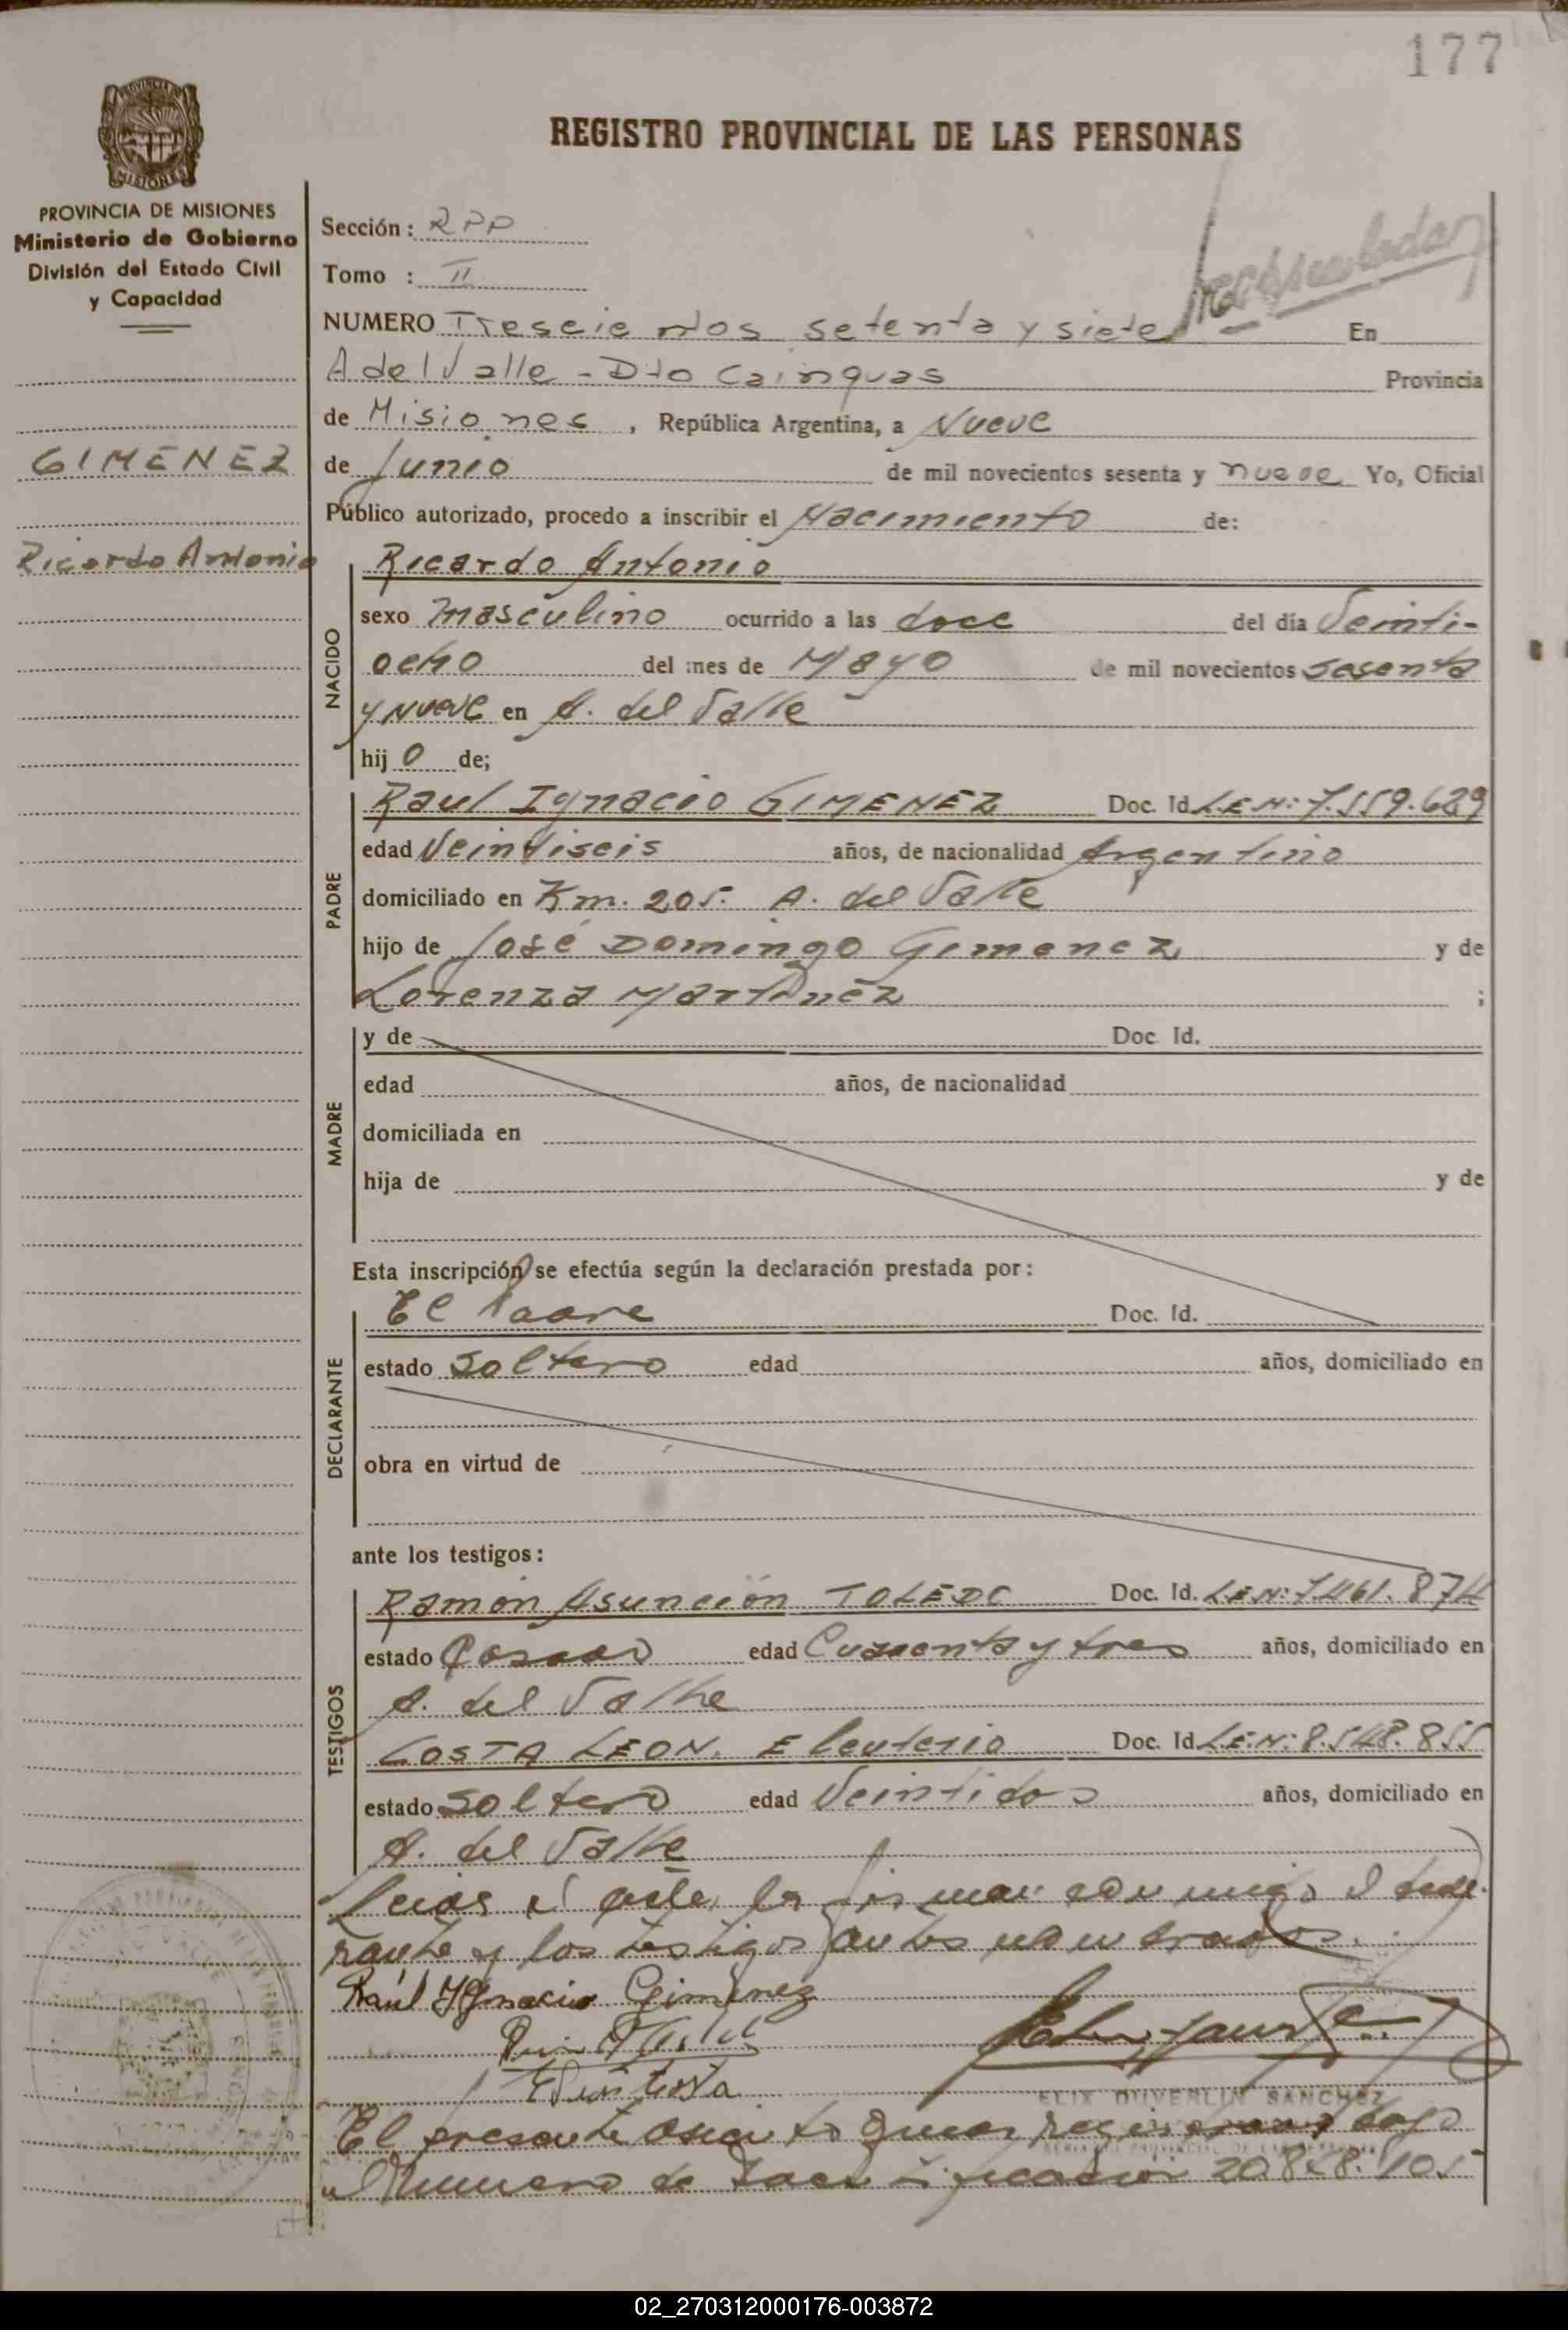 177
REGISTRO PROVINCIAL DE LAS PERSONAS
PROVINCIA DE MISIONES
Ministerio de Gobierno
División del Estado Civil
y Capacidad
GIMENEZ
Ricardo Antonio
Sección: RPP
Tomo : II
NUMERO Trescientos setenta y siete En
A del Valle - Dto Cainguas Provincia
de Misiones, República Argentina, a Nueve
de Junio de mil novecientos sesenta y nueve Yo, Oficial
Público autorizado, procedo a inscribir el Nacimiento de:
NACIDO
Ricardo Antonio
sexo masculino ocurrido a las doce del día Veinti-
ocho del mes de Mayo de mil novecientos sesenta
y nueve en A. del Valle
hij o de;
PADRE
Raul Ignacio GIMENEZ Doc. Id. L.E.N: 7.559.629
edad Veintiseis años, de nacionalidad Argentino
domiciliado en Km. 205. A. del Valle
hijo de José Domingo Gimenez y de
Lorenza Martinez ;
MADRE
y de Doc. Id.
edad años, de nacionalidad
domiciliada en
hija de y de
Esta inscripción se efectúa según la declaración prestada por:
DECLARANTE
El Padre Doc. Id.
estado soltero edad años, domiciliado en
obra en virtud de
ante los testigos:
TESTIGOS
Ramón Asunción TOLEDO Doc. Id. L.E.N: 7.461.874
estado Casado edad Cuarenta y tres años, domiciliado en
A. del Valle
COSTA LEON, Eleuterio Doc. Id. L.E.N: 8.548.855
estado soltero edad Veintidos años, domiciliado en
A. del Valle
Leida el acta, la firman conmigo el decla-
rante y los testigos antes nombrados.
Raúl Ygnacio Gimenez
SANCHEZ
El presente asiento queda registrado bajo
el Numero de Identificacion 20.828.105
02_270312000176-003872